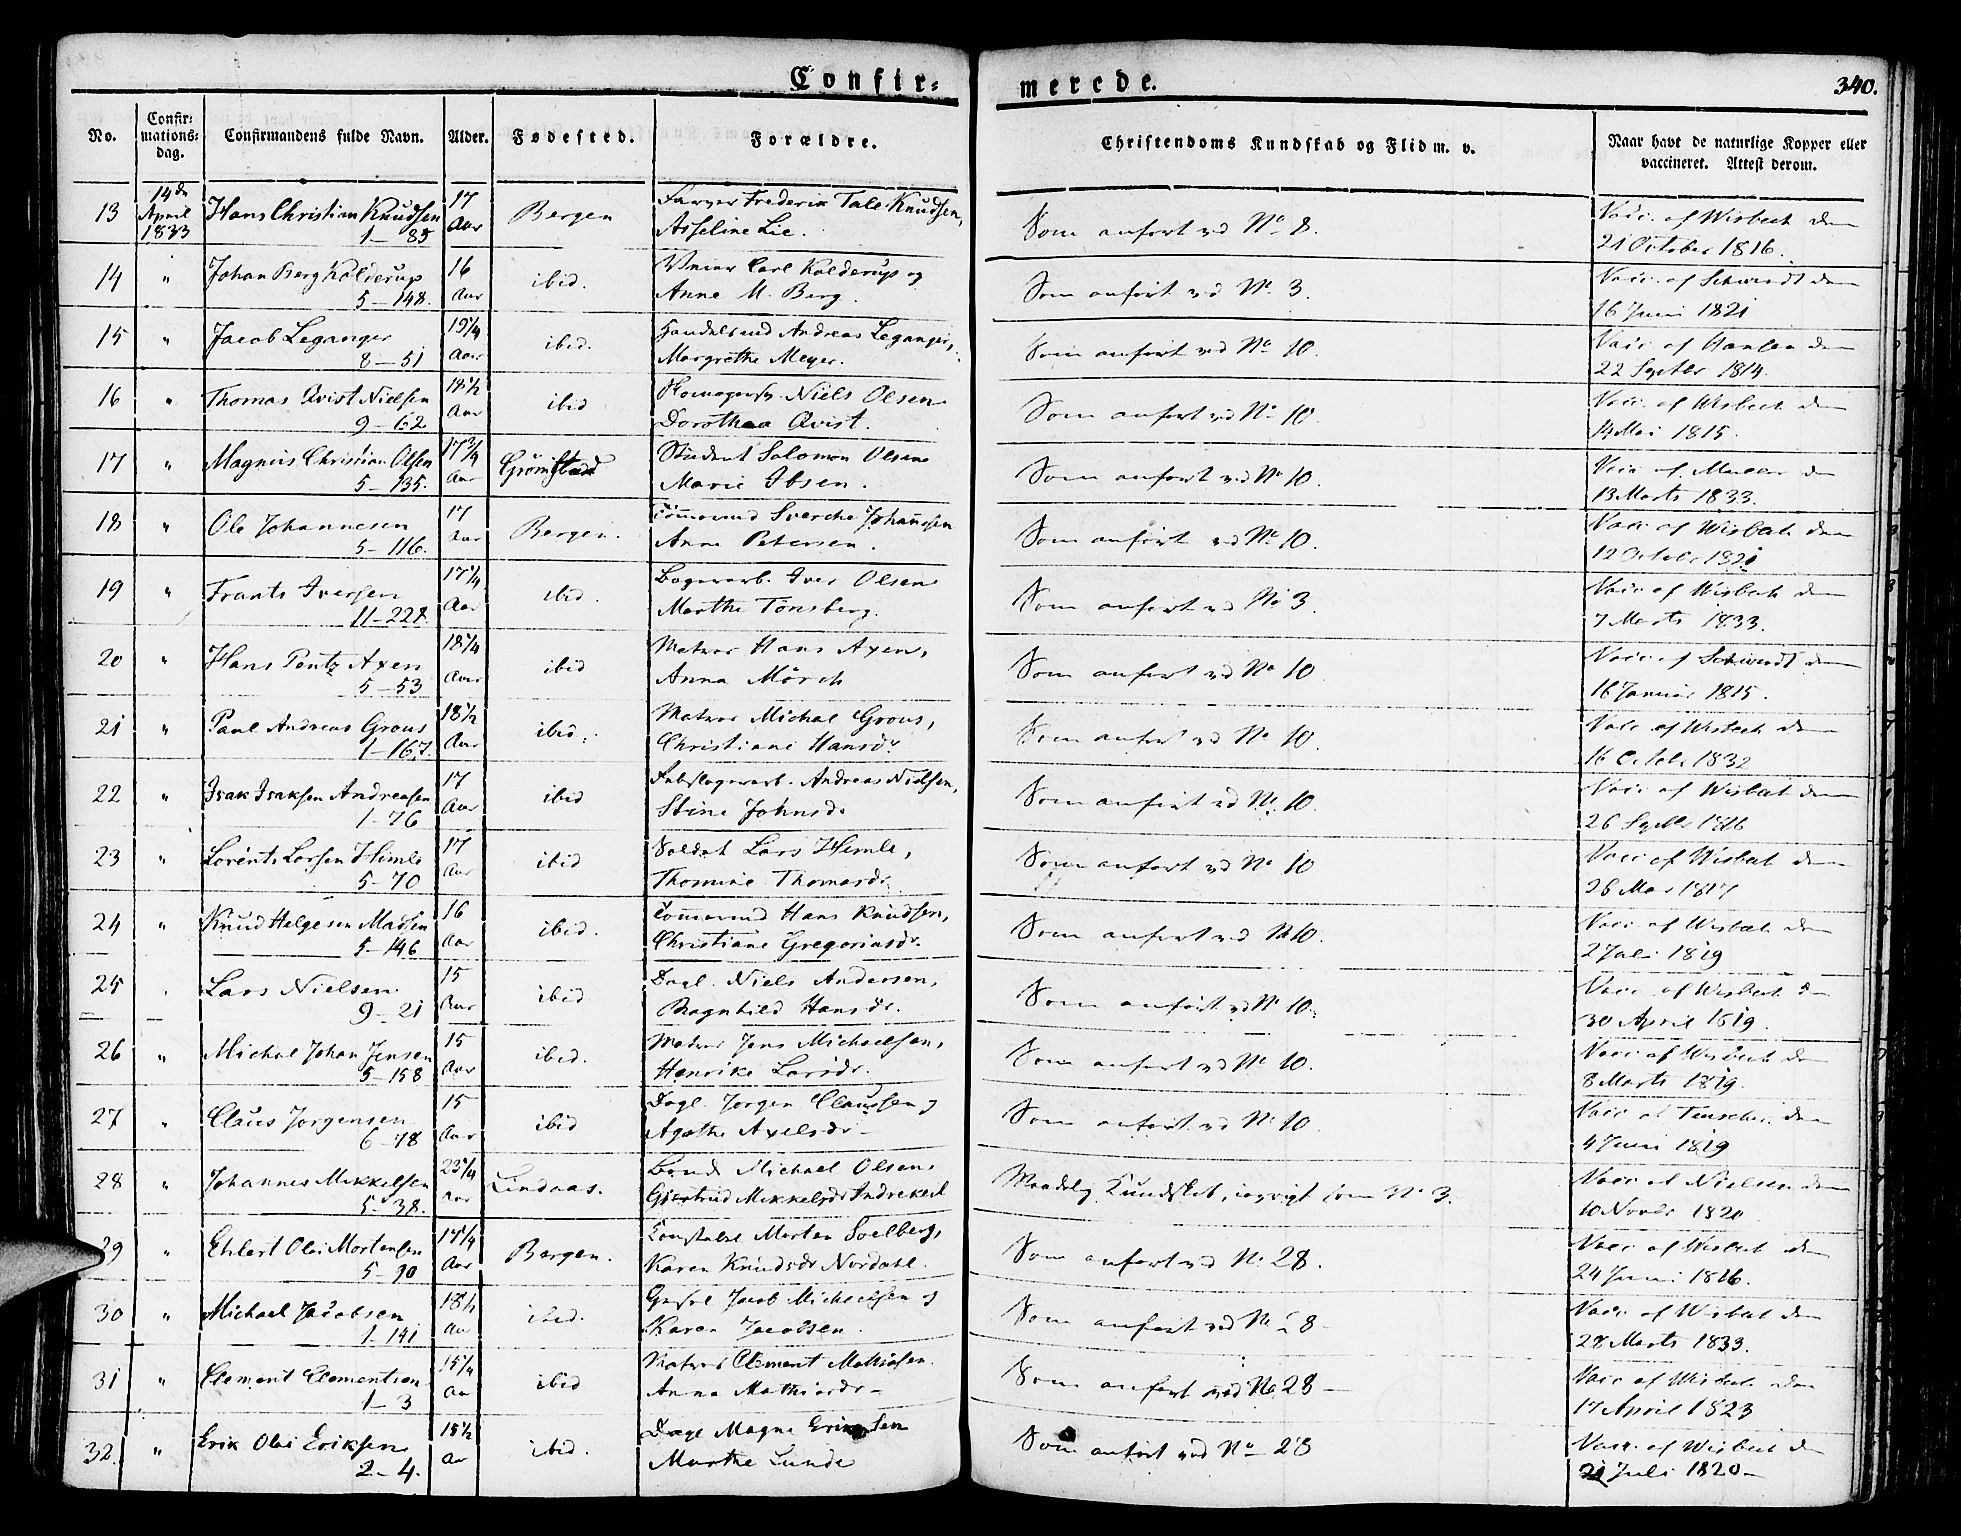 Confir- merede.
340.
No.
Confir-
mations-
dag.
Confirmandens fulde Navn.
Alder.
Fødested.
Forældre.
Christendoms Kundskab og Flid m. v.
Naar havt de naturlige Kopper eller
vaccineret. Attest derom.
13 14de April 1833 Hans Christian Knudsen 1-85 17 Aar Bergen Farver Frederik Tale Knudsen,
Asseline Lie. Som anført ved No 8. Vacc. af Wisbech den
21 October 1816.
14 " Johan Berg Kalderup 5-148. 16 Aar ibid. Carl Kalderup og
Anne M. Berg. Som anført ved No 3. Vacc. af Schwindt den
16 Juni 1821
15 " Jacob Leganger 8-51 19 1/4 Aar ibid. Handelsmd Andreas Leganger,
Margrethe Meyer. Som anført ved No 10. Vacc. af Hansen den
22 Septbr 1814.
16 " Thomas Qvist Nielsen 9-62 18 1/2 Aar ibid Niels Olsen
Dorothea Qvist. Som anført ved No 10. Vacc. af Wisbech den
14 Mai 1815.
17 " Magnus Christian Olsen 5-135. 17 3/4 Aar Student Salomon Olsen
Marie Ibsen. Som anført ved No 10. Vacc. af Müller den
13 Marts 1833.
18 " Ole Johannesen 5-116. 17 Aar Bergen. Tømmermd Sverche Johannesen
Anne Petersen. Som anført ved No 10. Vacc. af Wisbech den
12 October 1821
19 " Frants Iversen 11-228. 17 1/4 Aar ibid. Iver Olsen
Marthe Tønsberg. Som anført ved No 3. Vacc. af Wisbech den
7 Marts 1833.
20 " Hans Pentz Axen 5-53 18 1/4 Aar ibid Matros Hans Axen,
Anna Mørch Som anført ved No 10 Vacc. af Schwindt den
16 Januar 1815.
21 " Paul Andreas Grous 1-167. 18 1/2 Aar ibid. Matros Michal Grous,
Christiane Hansdr Som anført ved No 10. Vacc. af Wisbech den
16 Octobr 1832
22 " Isak Isaksen Andreasen 1-76 17 Aar ibid Andreas Nielsen,
Stine Johnsdr Som anført ved No 10. Vacc. af Wisbech den
26 Septbr 1816
23 " Lorents Larsen Himle 5-70 17 Aar ibid Soldat Lars Himle,
Thomine Thomasdr. Som anført ved No 10 Vacc. af Wisbech den
26 Mai 1817
24 " Knud Helgesen Madsen 5-146 16 Aar ibid. Tømmermd Hans Knudsen,
Christiane Gregoriusdr. Som anført ved No 10. Vacc. af Wisbech den
2 Juli 1819
25 Lars Nielsen 9-21 15 Aar ibid Dagl. Niels Andersen,
Ragnhild Hansdr. Som anført ved No 10. Vacc. af Wisbech d
30 April 1819.
26 " Michal Johan Jensen 5-158 15 Aar ibid. Matros Jens Michaelsen,
Henrike Larsdr. Som anført ved No 10. Vacc. af Wisbech den
8 Marts 1819.
27 " Claus Jørgensen 6-78 15 Aar ibid Dagl. Jørgen Claussen og
Agathe Axelsdr Som anført ved No 10. Vacc. af den
4 Juni 1819
28 " Johannes Mikkelsen 5-38. 23 1/4 Aar Lindaas. Bonde Michael Olsen,
Giertrud Mikkelsdr Som No 3. Vacc. af Nielsen den
10 Novbr 1820
29 " Ehlert Olai Mortensen 5-90 17 1/4 Aar Bergen. Morten Soelberg,
Karen Knudsdr Nordahl. Som anført ved No 28. Vacc. af Wisbech den
24 Juni 1816.
30 " Michael Jacobsen 1-141 18 1/2 Aar ibid. Jacob Michaelsen og
Karen Jacobsen. Som anført ved No 28 Vacc. af Wisbech den
28 Marts 1833.
31 " Clement Clementsen 1-3 15 1/4 Aar ibid Matros Clement Mathiasen.
Anna Mathiasdr Som anført ved No 28 Vacc. af Wisbech den
17 April 1823
32. " Erik Olai Eriksen 2-4. 15 1/2 Aar ibid. Dagl Magne Eriksen
Marthe Lunde Som anført ved No 28 Vacc. af Wisbech den
21 Juli 1820